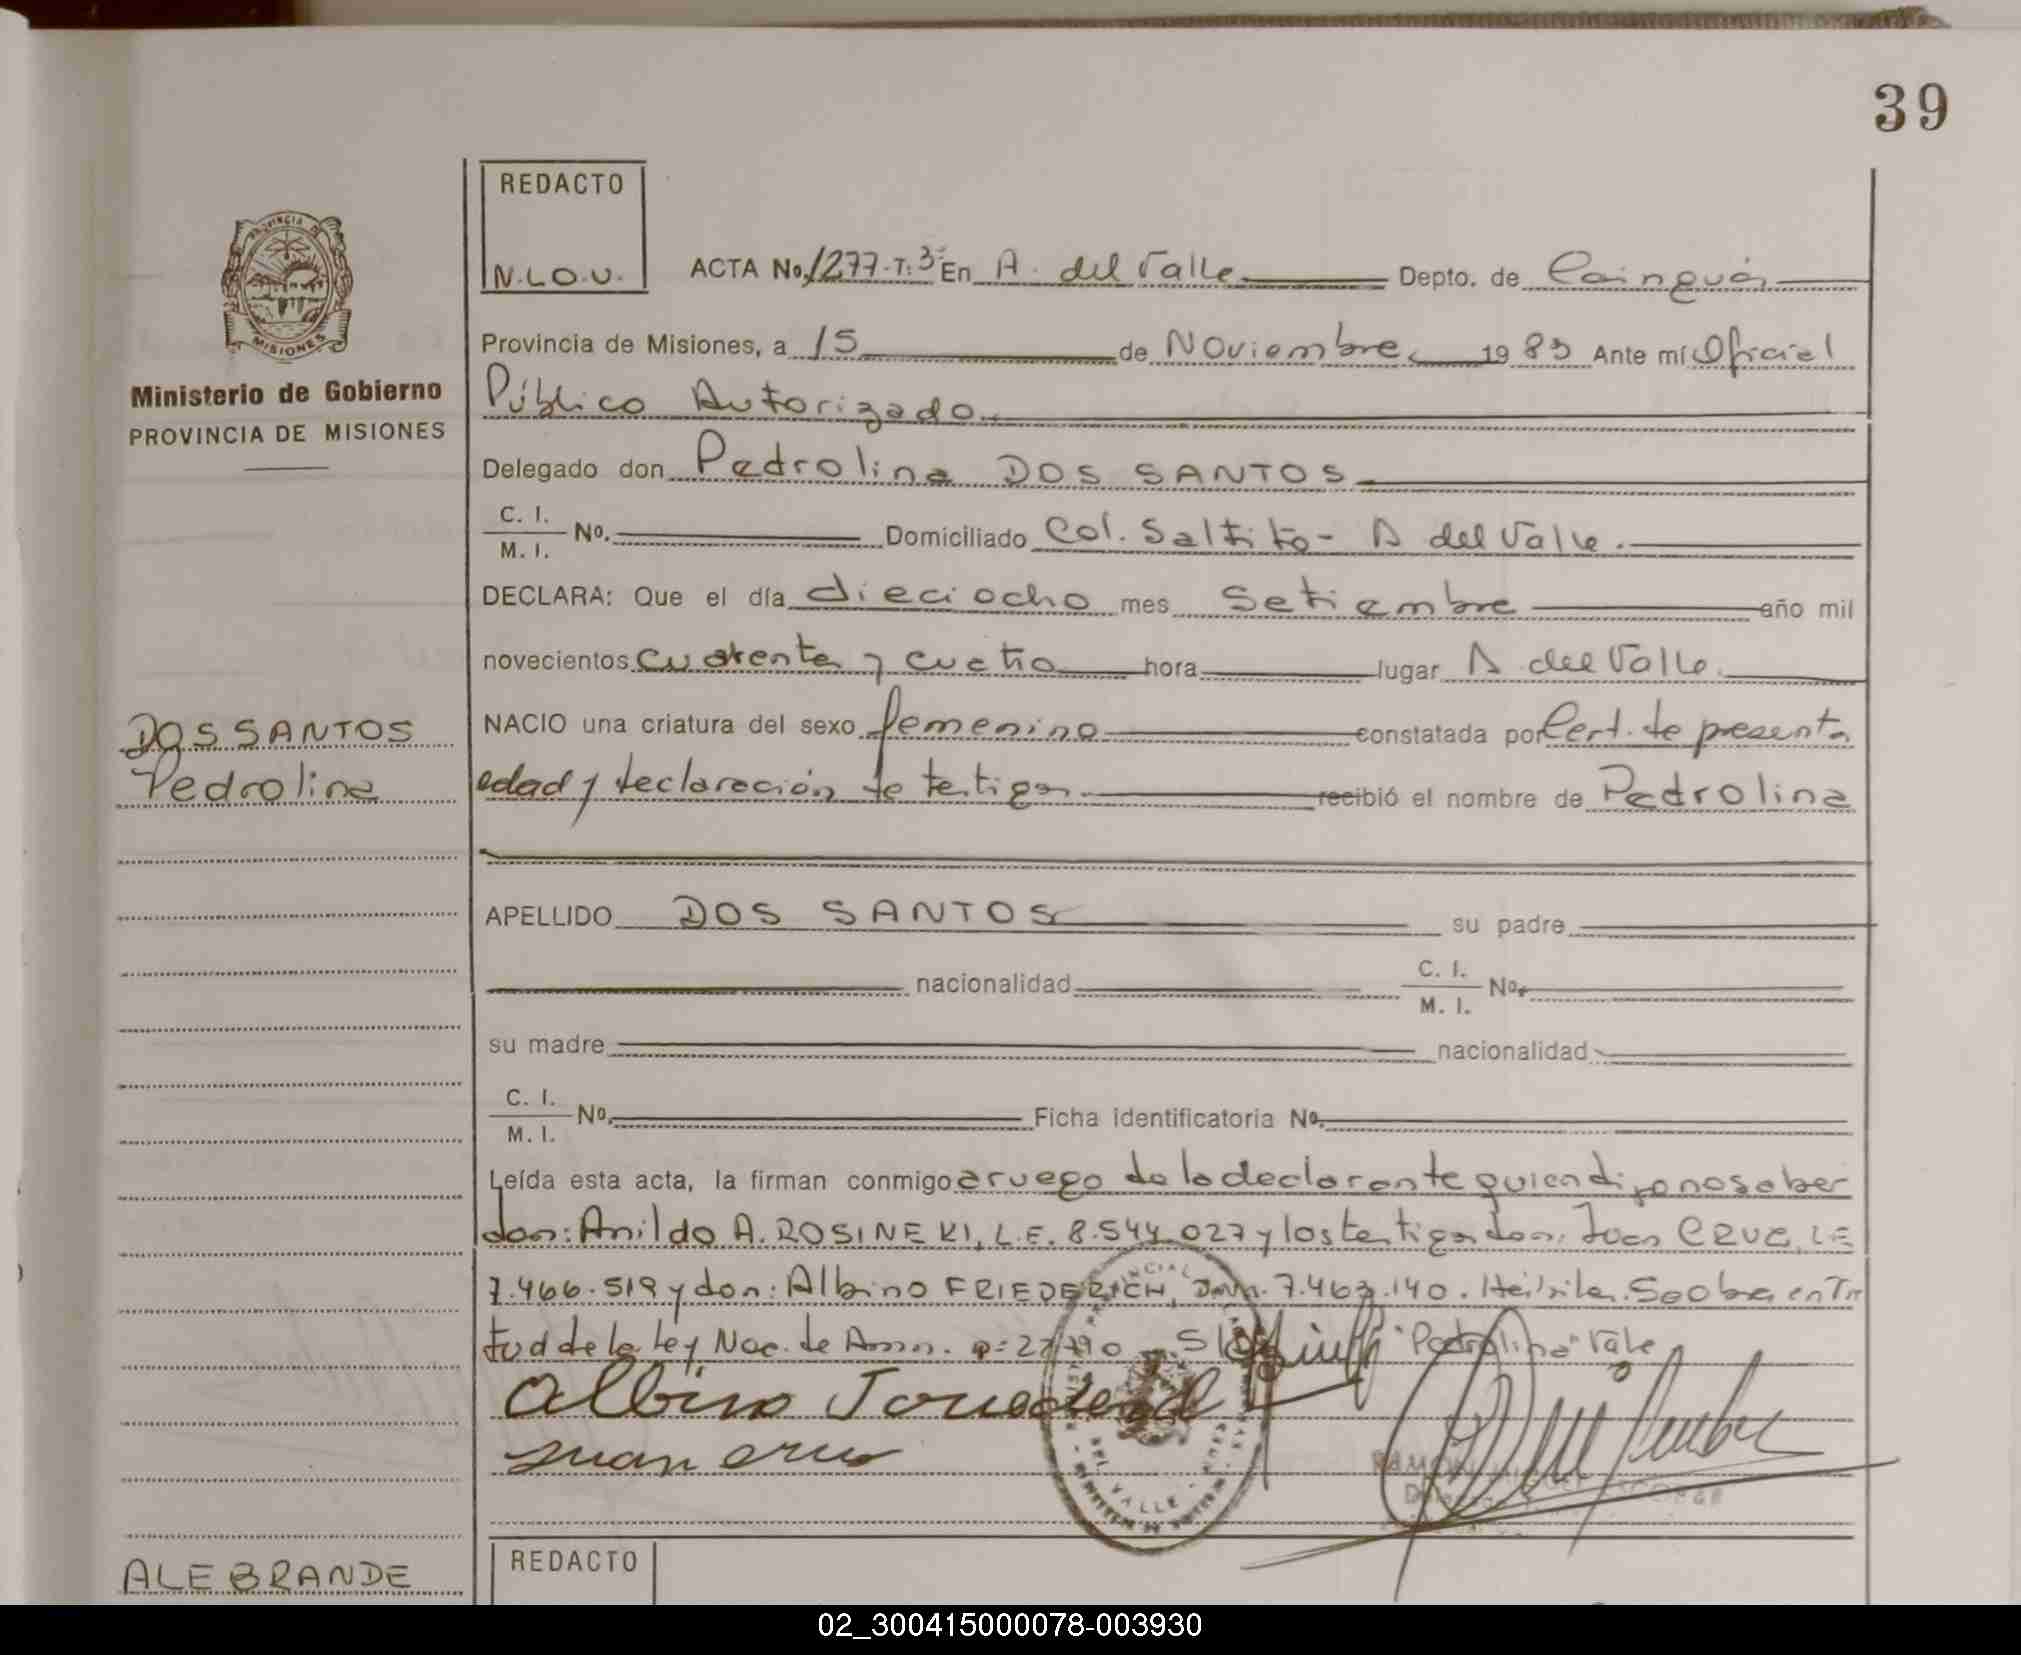 39
REDACTO
N.L.O.U.
ACTA No. 1277-T:3º En A. del Valle Depto. de Cainguás
Provincia de Misiones, a 15 de Noviembre 1985 Ante mí Oficial
Público Autorizado
Delegado don Pedrolina DOS SANTOS
C. I.
M. I. No. Domiciliado Col. Saltito - A del Valle.
DECLARA: Que el día dieciocho mes Setiembre año mil
novecientos cuarenta y cuatro hora lugar A del Valle.
NACIO una criatura del sexo femenino constatada por Cert. de presenta
edad y declaración de testigos recibió el nombre de Pedrolina
APELLIDO DOS SANTOS su padre
nacionalidad C. I.
M. I. No.
su madre nacionalidad
C. I.
M. I. No. Ficha identificatoria No.
Leída esta acta, la firman conmigo a ruego de la declarante quien dijo no saber
don: Anildo A. ROSINEKI, L.E. 8.544.027 y los testigos don: Juan CRUZ, LE
7.466.519 y don: Albino FRIEDERICH, 7.463.140.
tud de la Ley Nac. de "Pedrolina" Vale
Albino
Juan
DEL VALLE
PROVINCIA DE
MISIONES
Ministerio de Gobierno
PROVINCIA DE MISIONES
DOS SANTOS
Pedrolina
ALEBRANDE
REDACTO
02_300415000078-003930